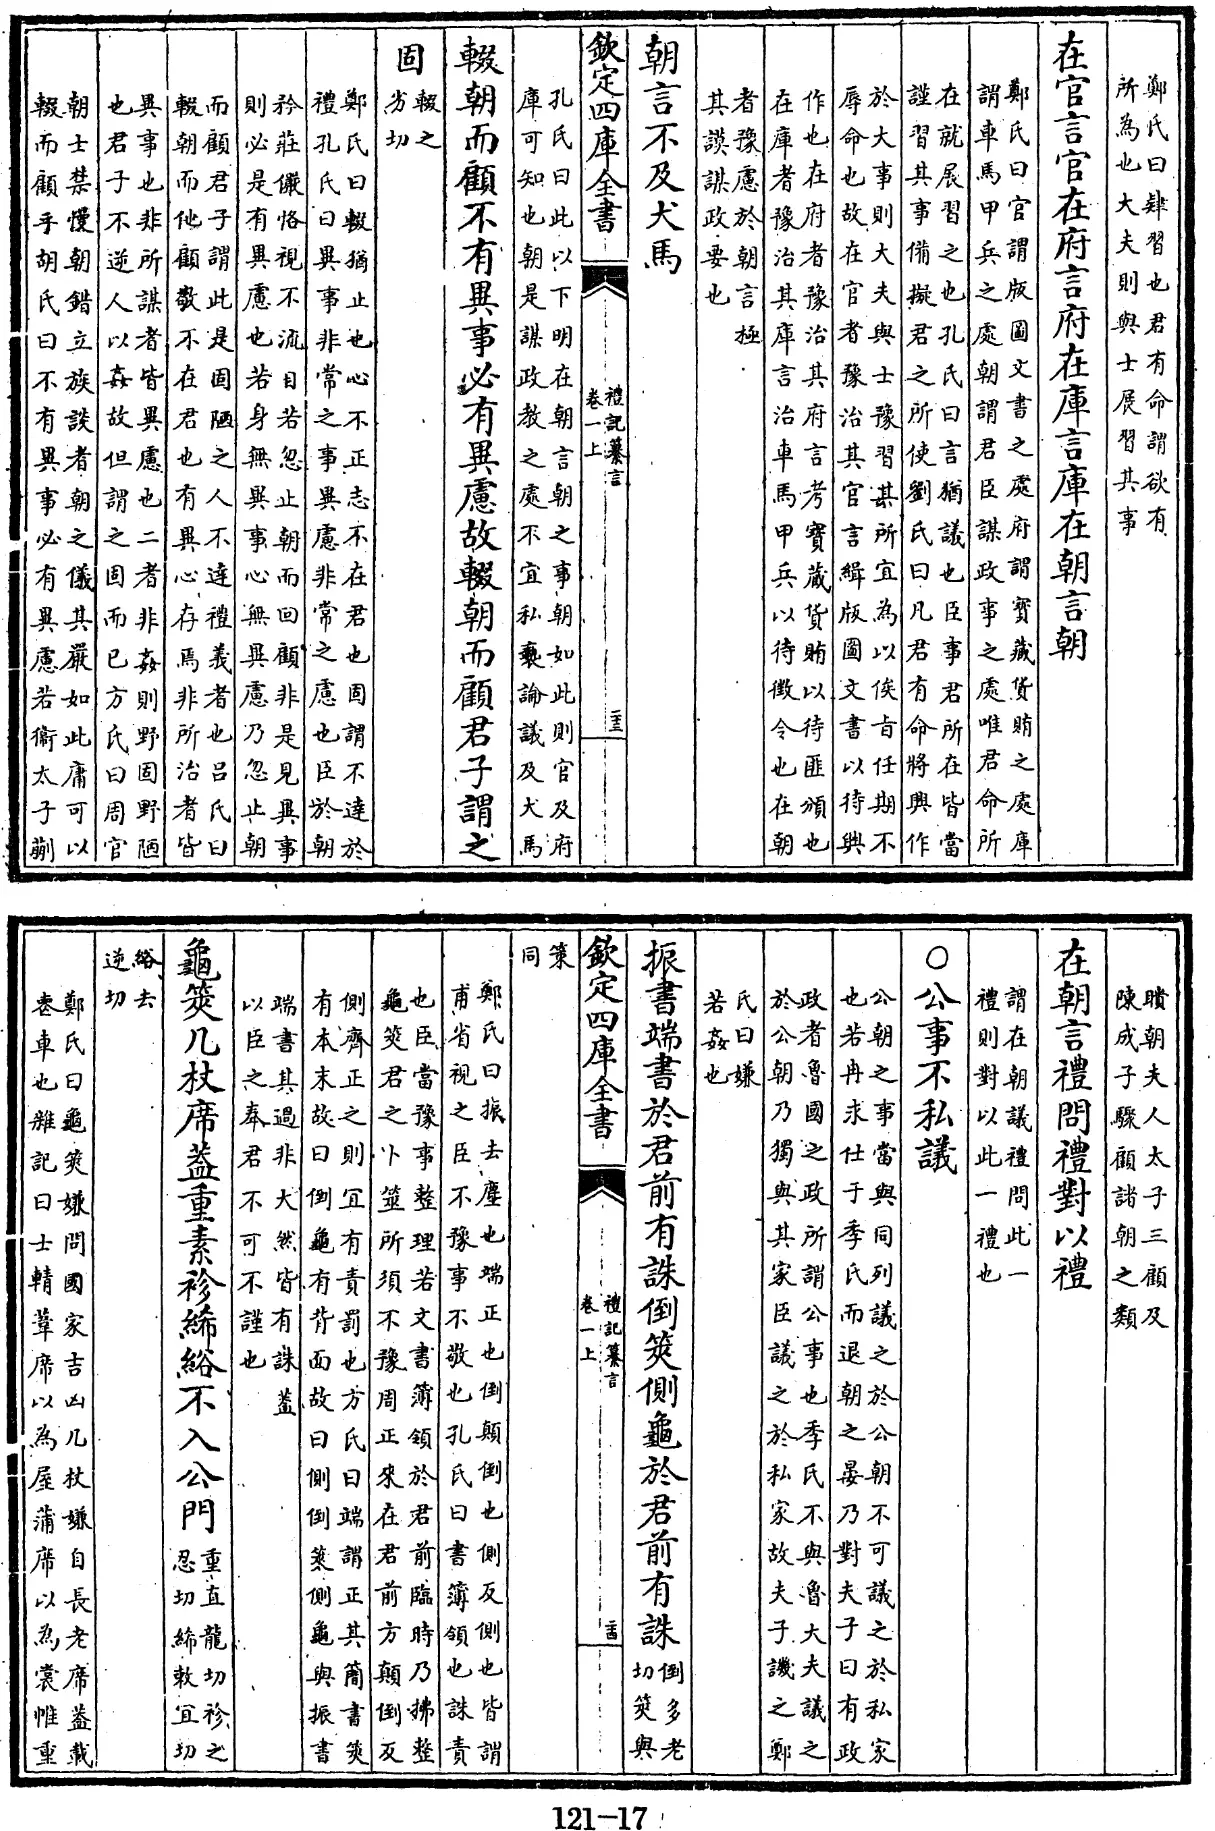 鄭氏曰肄習也君有命謂欲有
所為也大夫則與士展習其事
在官言官在府言府在庫言庫在朝言朝
鄭氏曰官謂版圖文書之處府謂寳藏貨賄之處庫
謂車馬甲兵之處朝謂君臣謀政事之處唯君命所
在就展習之也孔氏曰言猶議也臣事君所在皆當
謹習其事備擬君之所使劉氏曰凡君有命將興作
於大事則大夫與士豫習其所宜為以俟㫖任期不
辱命也故在官者豫治其官言緝版圖文書以待興
作也在府者豫治其府言考寳藏貨賄以待匪頒也
在庫者豫治其庫言治車馬甲兵以待徴令也在朝
者豫慮於朝言極
其謨謀政要也
朝言不及犬馬
欽定四庫全書
禮記纂言
卷一上
二三
孔氏曰此以下明在朝言朝之事朝如此則官及府
庫可知也朝是謀政教之處不宜私䙝論議及犬馬
輟朝而顧不有異事必有異慮故輟朝而顧君子謂之
固
輟之
劣切
鄭氏曰輟猶止也心不正志不在君也固謂不達於
禮孔氏曰異事非常之事異慮非常之慮也臣於朝
矜莊儼恪視不流目若忽止朝而回顧非是見異事
則必是有異慮也若身無異事心無異慮乃忽止朝
而顧君子謂此是固陋之人不達禮義者也吕氏曰
輟朝而他顧敬不在君也有異心存焉非所治者皆
異事也非所謀者皆異慮也二者非姦則野固野陋
也君子不逆人以姦故但謂之固而已方氏曰周官
朝士禁慢朝錯立族談者朝之儀其嚴如此庸可以
輟而顧乎胡氏曰不有異事必有異慮若衞太子蒯
聵朝夫人太子三顧及
陳成子驟顧諸朝之類
在朝言禮問禮對以禮
謂在朝議禮問此一
禮則對以此一禮也
○公事不私議
公朝之事當與同列議之於公朝不可議之於私家
也若冉求仕于季氏而退朝之晏乃對夫子曰有政
政者魯國之政所謂公事也季氏不與魯大夫議之
於公朝乃獨與其家臣議之於私家故夫子譏之鄭
氏曰嫌
若姦也
振書端書於君前有誅倒筴側龜於君前有誅
倒多老
切筴與
欽定四庫全書
禮記纂言
卷一上
二四
策
同
鄭氏曰振去塵也端正也倒顛倒也側反側也皆謂
甫省視之臣不豫事不敬也孔氏曰書簿領也誅責
也臣當豫事整理若文書簿領於君前臨時乃拂整
龜筴君之卜筮所須不豫周正來在君前方顛倒反
側齊正之則冝有責罰也方氏曰端謂正其簡書筴
有本末故曰倒龜有背面故曰側倒筴側龜與振書
端書其過非大然皆有誅蓋
以臣之奉君不可不謹也
龜筴几杖席蓋重素袗絺綌不入公門
重直龍切袗之
忍切絺敕宜切
綌去
逆切
鄭氏曰龜筴嫌問國家吉凶几杖嫌自長老席蓋載
喪車也雜記曰士輤葦席以為屋蒲席以為裳帷重
121-17